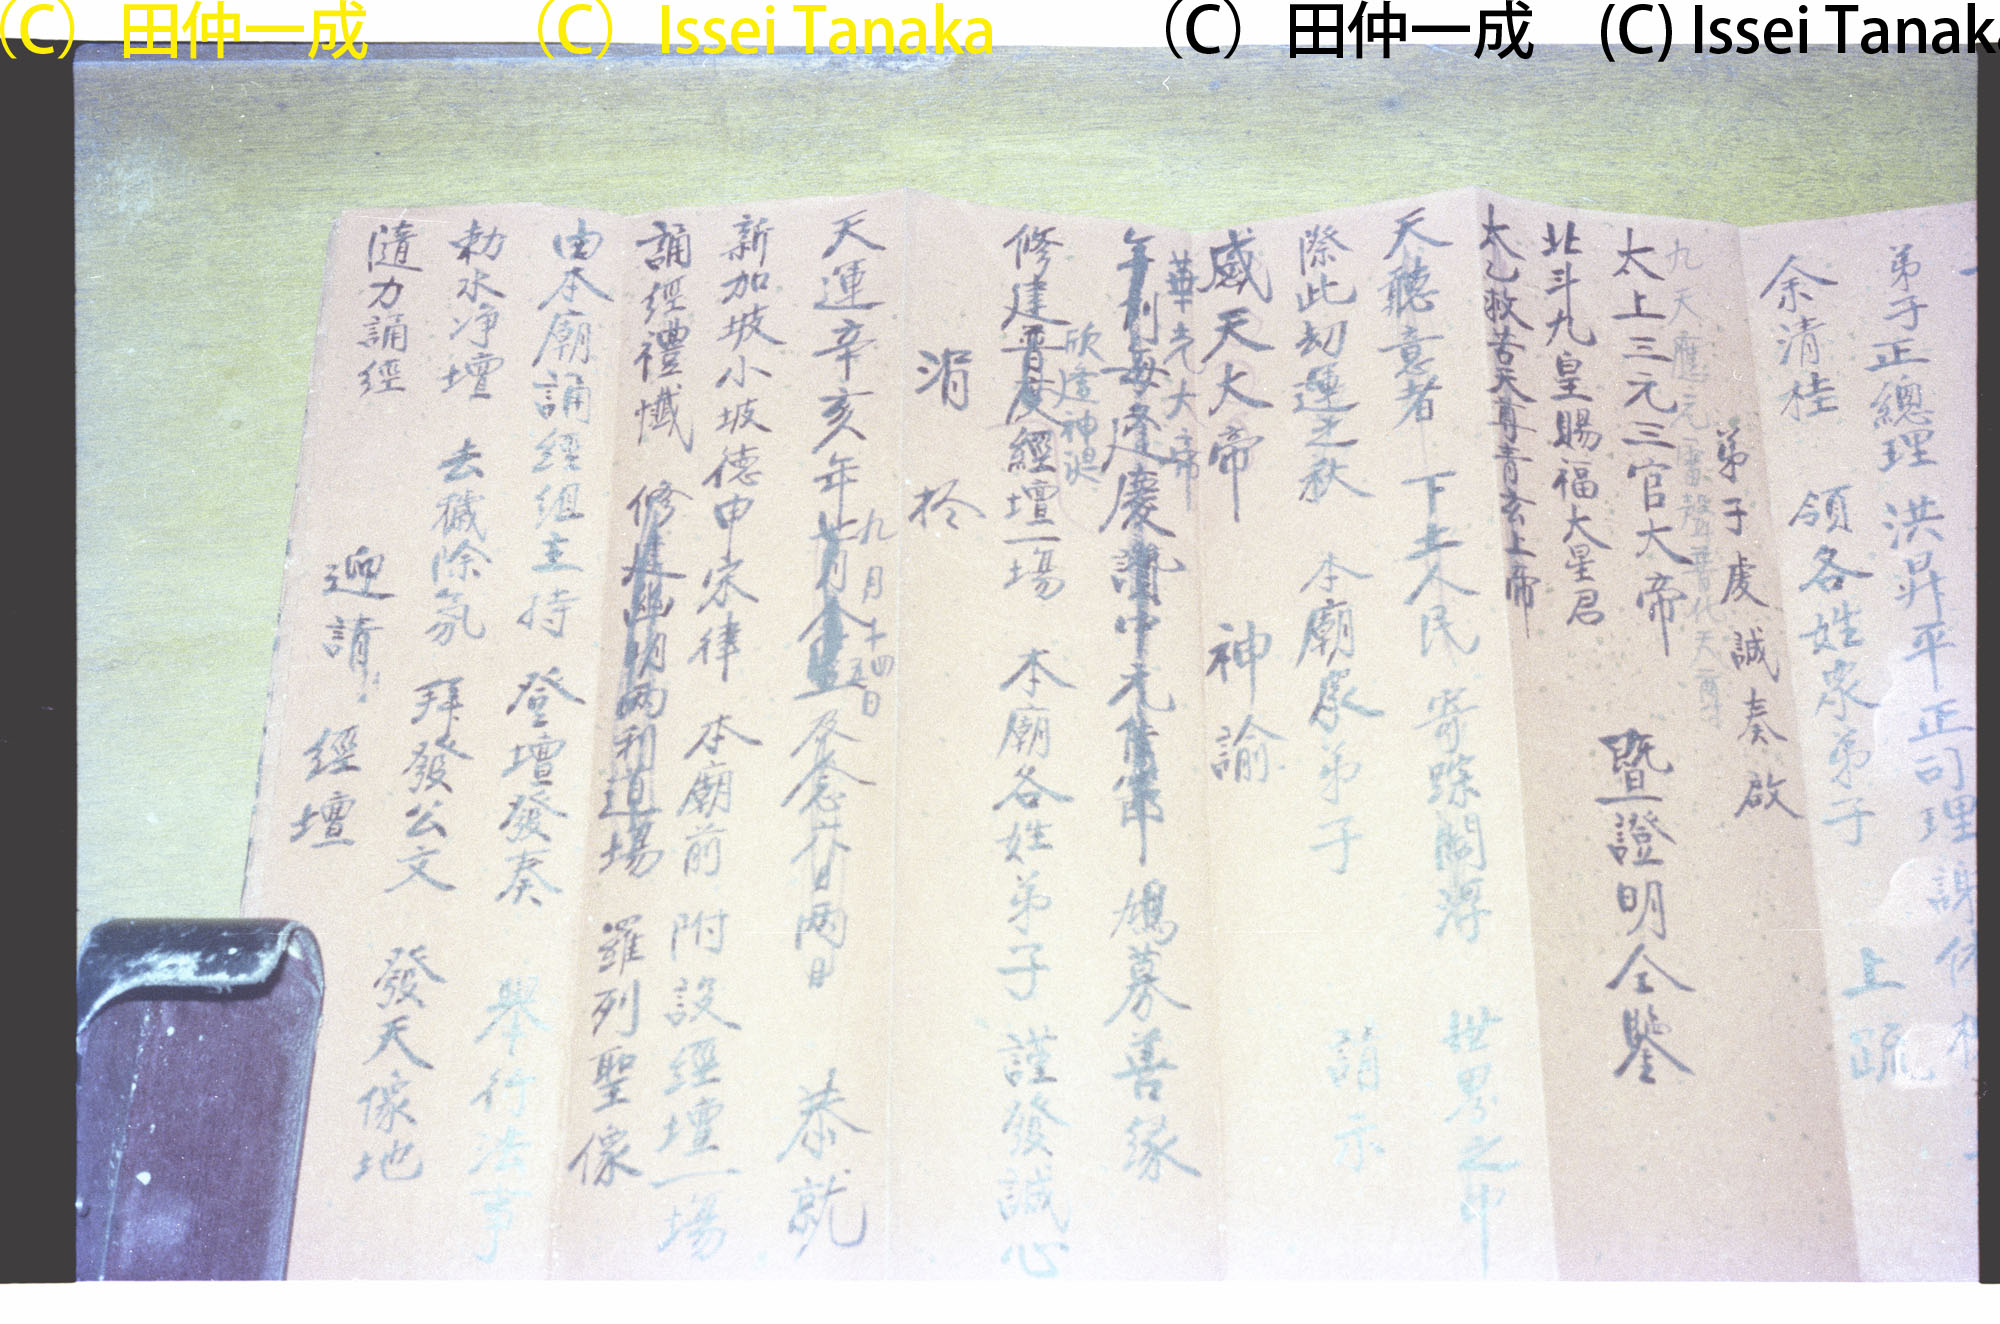 (C) 田仲一成 (C) Issei Tanaka (C) 田仲一成 (C) Issei Tanaka
弟子正總理 洪昇平正司理謝
余清桂 領各姓眾弟子 上疏
弟子虔誠奏啟
九天應元雷聲普化天尊
太上三元三官大帝 暨證明仝鑒
北斗九皇賜福大星君
太乙救苦天尊青玄上帝
天聽意者 下土人民 寄踪閻浮 世界之中
際此劫運之秋 本廟眾弟子 請示
感天大帝 神諭
華光大帝
年例每逢慶讚中元 鳩募善緣
欣逢神誕
修建普度經壇一場 本廟各姓弟子 謹發誠心
涓於
天運辛亥年 廿日兩日 恭就
九月十四五日
新加坡小坡德申宋律 本廟前 附設經壇一場
誦經禮懺 修建幽明兩利道場 羅列聖像
由本廟誦經組主持 登壇發奏 舉行法事
勅水净壇 去穢除氛 拜發公文
隨力誦經 迎請 經壇 發天像地